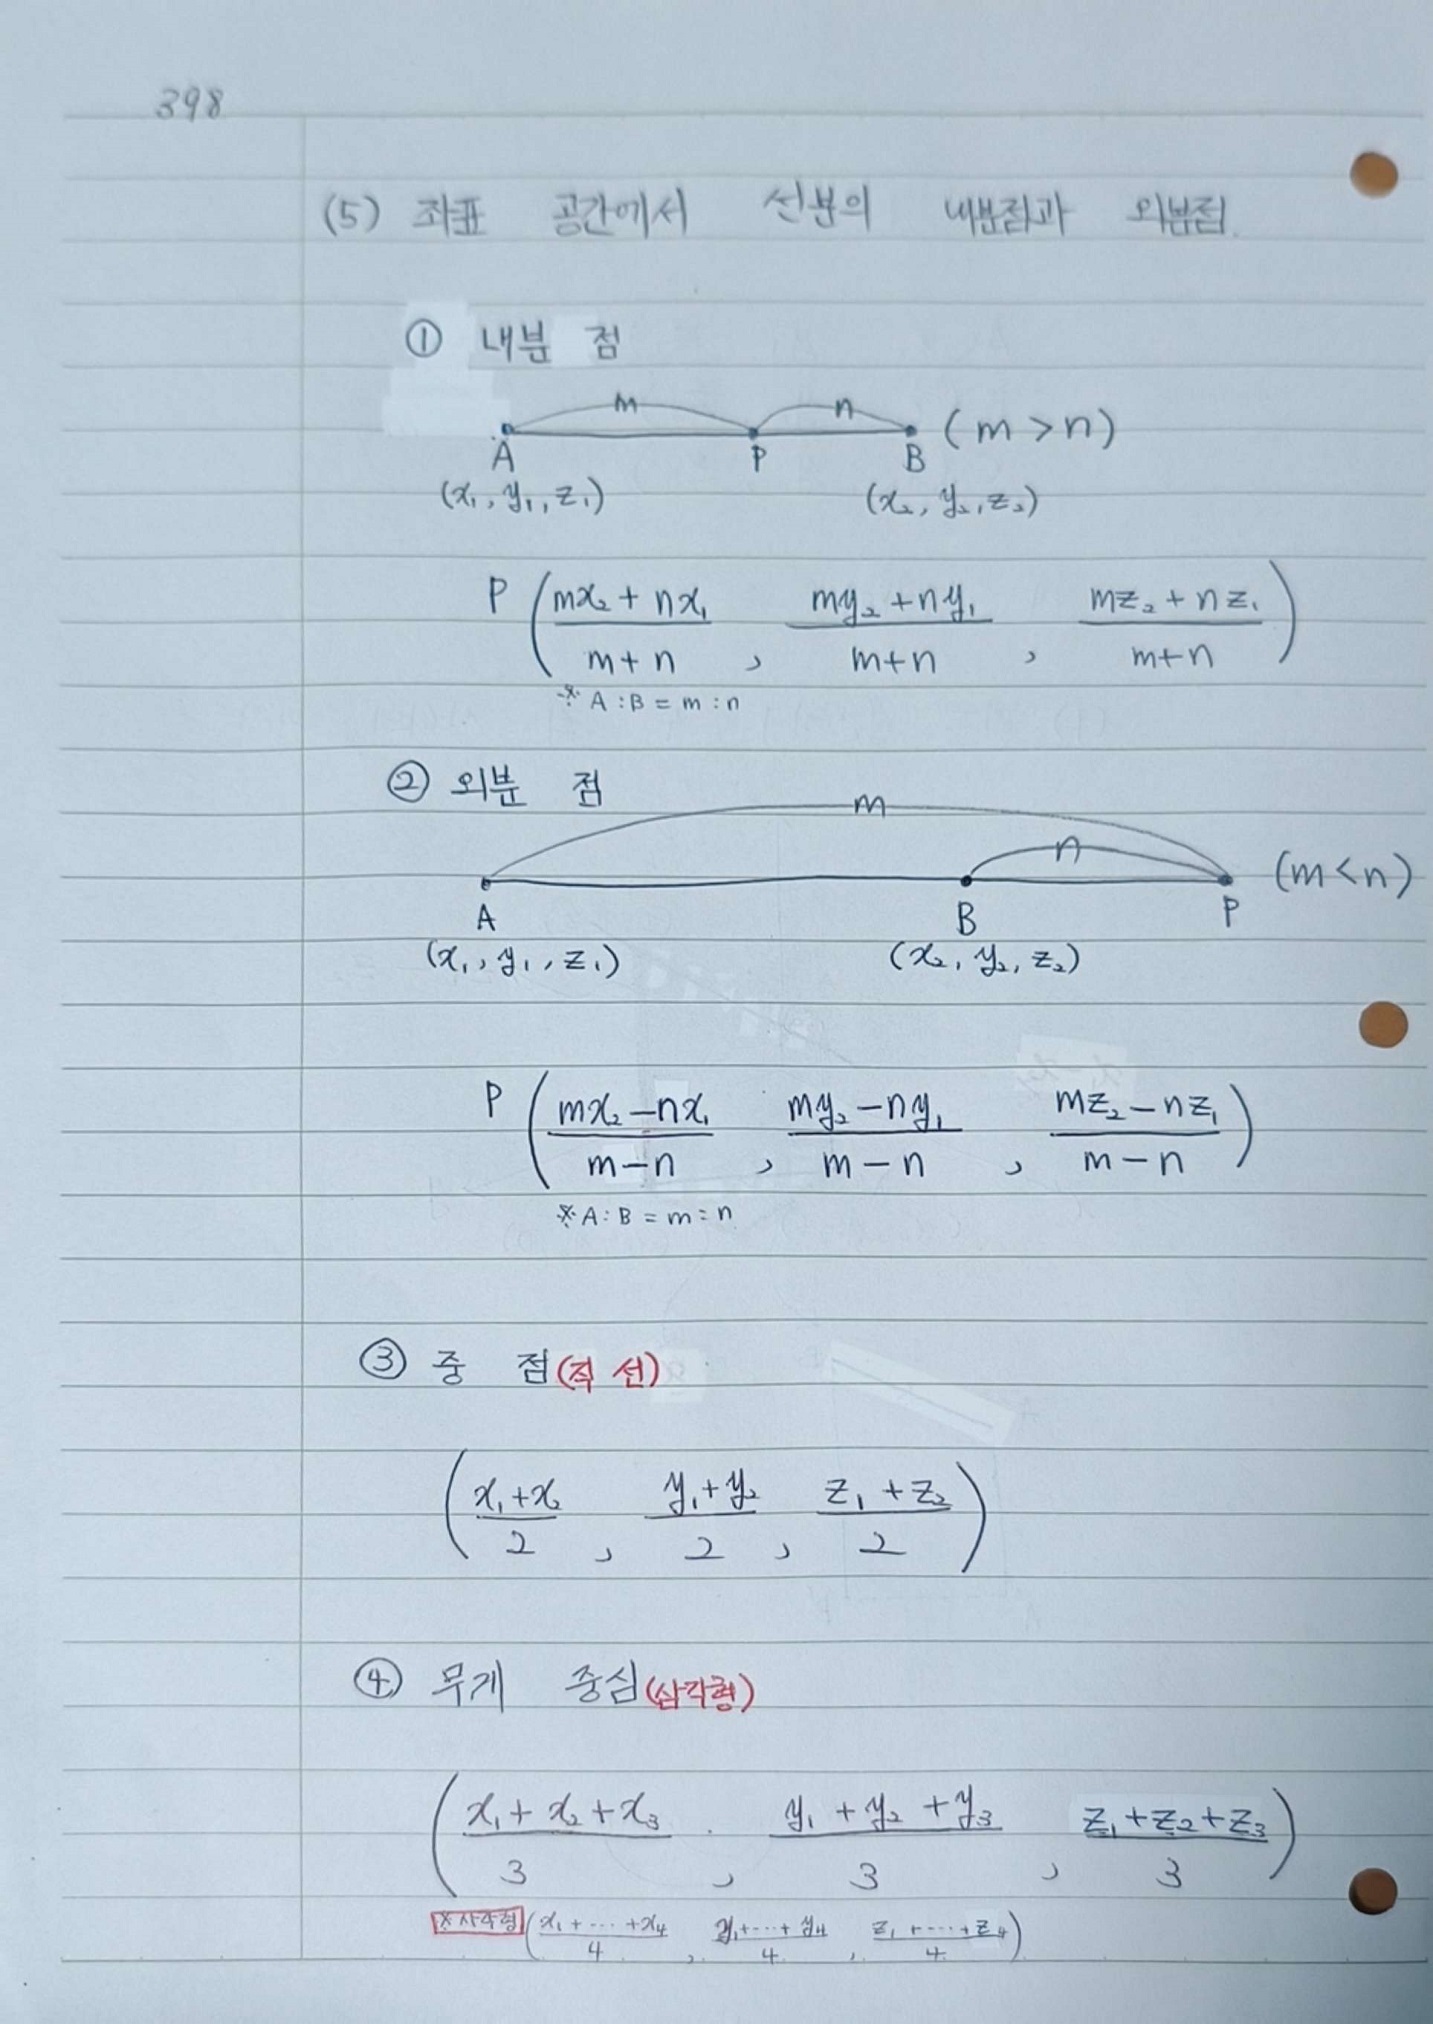 398
(5) 좌표 공간에서 선분의 내분점과 외분점.
① 내분 점
m n
A P B (m > n)
(x₁, y₁, z₁) (x₂, y₂, z₂)
P ( (mx₂ + nx₁)/(m+n) , (my₂ + ny₁)/(m+n) , (mz₂ + nz₁)/(m+n) )
※ A : B = m : n
② 외분 점
m
n
(m < n)
A B P
(x₁, y₁, z₁) (x₂, y₂, z₂)
P ( (mx₂ − nx₁)/(m − n) , (my₂ − ny₁)/(m − n) , (mz₂ − nz₁)/(m − n) )
※ A : B = m : n
③ 중 점 (직 선)
( (x₁ + x₂)/2 , (y₁ + y₂)/2 , (z₁ + z₂)/2 )
④ 무게 중심 (삼각형)
( (x₁ + x₂ + x₃)/3 , (y₁ + y₂ + y₃)/3 , (z₁ + z₂ + z₃)/3 )
※ 사각형 ( (x₁ + ⋯ + x₄)/4 , (y₁ + ⋯ + y₄)/4 , (z₁ + ⋯ + z₄)/4 )